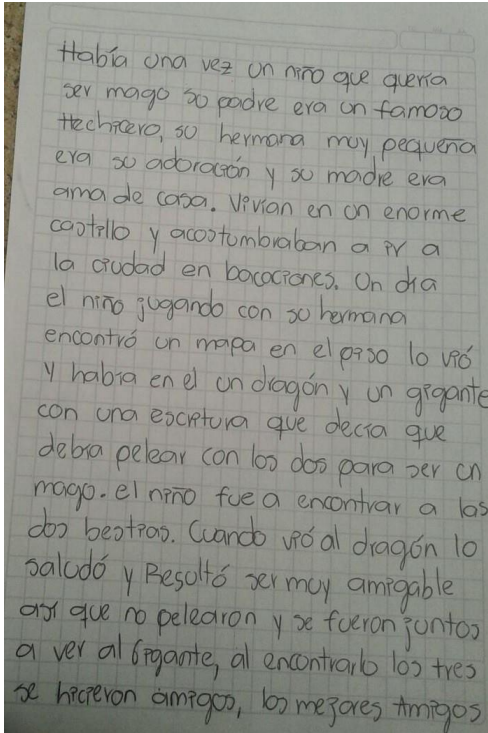 Había una vez un niño que quería
ser mago su padre era un famoso
Hechicero, su hermana muy pequeña
era su adoración y su madre era
ama de casa. Vivian en un enorme
castillo y acostumbraban a ir a
la ciudad en bacaciones. Un dia
el niño jugando con su hermana
encontró un mapa en el piso lo vió
y habia en el un dragón y un gigante
con una escritura que decia que
debia pelear con los dos para ser un
mago. el niño fue a encontrar a las
dos bestias. Cuando vió al dragón lo
saludó y Resultó ser muy amigable
asi que no pelearon y se fueron juntos
a ver al Gigante, al encontrarlo los tres
se hicieron amigos, los mejores Amigos